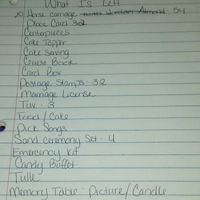 What Is Left
Horse carriage Jordan Almond 54
Place Card 32
Centerpieces
Cake Topper
Cake Serving
Guest Book
Card Box
Postage Stamps 32
Marriage License
Tux - 3
Food / Cake
Pick Songs
Sand ceremony Set - 4
Emergency Kit
Candy Buffet
Tulle
Memory Table - Picture/Candle